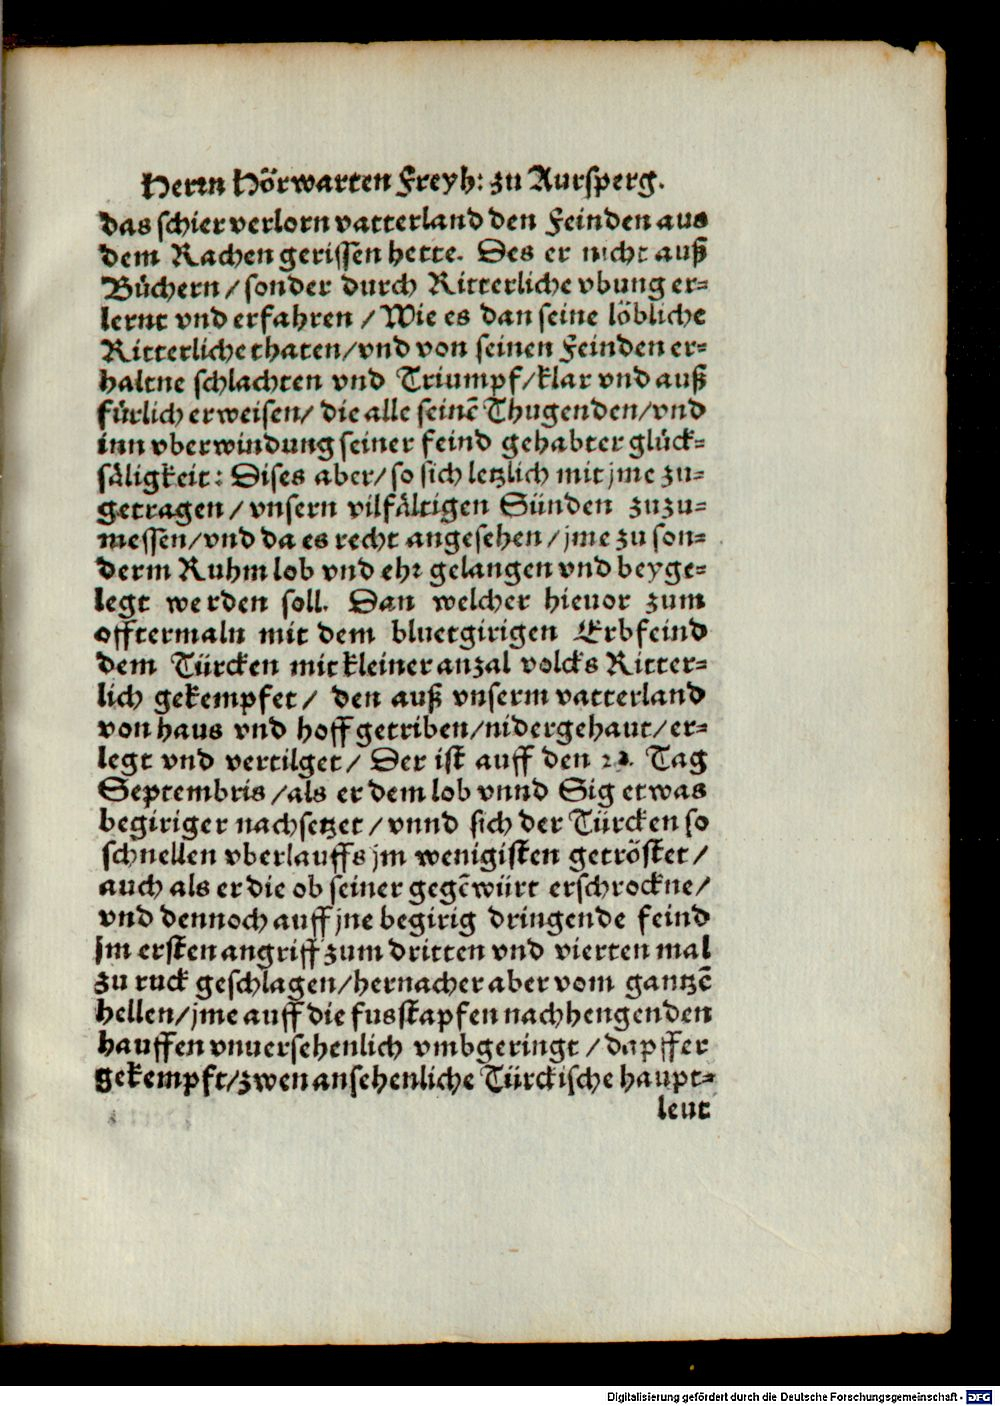 Herrn Hörwarten Freyh: zu Aursperg.
das schier verlorn vatterland den Feinden aus
dem Rachen gerissen hette. Des er nicht auß
Büchern / sonder durch Ritterliche vbung er=
lernt vnd erfahren / Wie es dan seine löbliche
Ritterliche thaten / vnd von seinen Feinden er=
haltne schlachten vnd Triumpf / klar vnd auß
fürlich erweisen / die alle seinē Thugenden / vnd
inn vberwindung seiner feind gehabter glück=
säligkeit: Dises aber / so sich letzlich mit jme zu=
getragen / vnsern vilfältigen Sünden zuzu=
messen / vnd da es recht angesehen / jme zu son=
derm Ruhm lob vnd ehr gelangen vnd beyge=
legt werden soll. Dan welcher hieuor zum
offtermaln mit dem bluetgirigen Erbfeind
dem Türcken mit kleiner anzal volcks Ritter=
lich gekempfet / den auß vnserm vatterland
von haus vnd hoff getriben / nidergehaut / er=
legt vnd vertilget / Der ist auff den Tag
Septembris / als er dem lob vnnd Sig etwas
begiriger nachsetzet / vnnd sich der Türcken so
schnellen vberlauffs jm wenigisten getröstet /
auch als er die ob seiner gegēwürt erschrockne /
vnd dennoch auff jne begirig dringende feind
jm ersten angriff zum dritten vnd vierten mal
zu ruck geschlagen / hernacher aber vom gantzē
hellen / jme auff die fusstapfen nachhengenden
hauffen vnuersehenlich vmbgeringt / dapffer
gekempft / zwen ansehenliche Türckische haupt=
leut
Digitalisierung gefördert durch die Deutsche Forschungsgemeinschaft - DFG